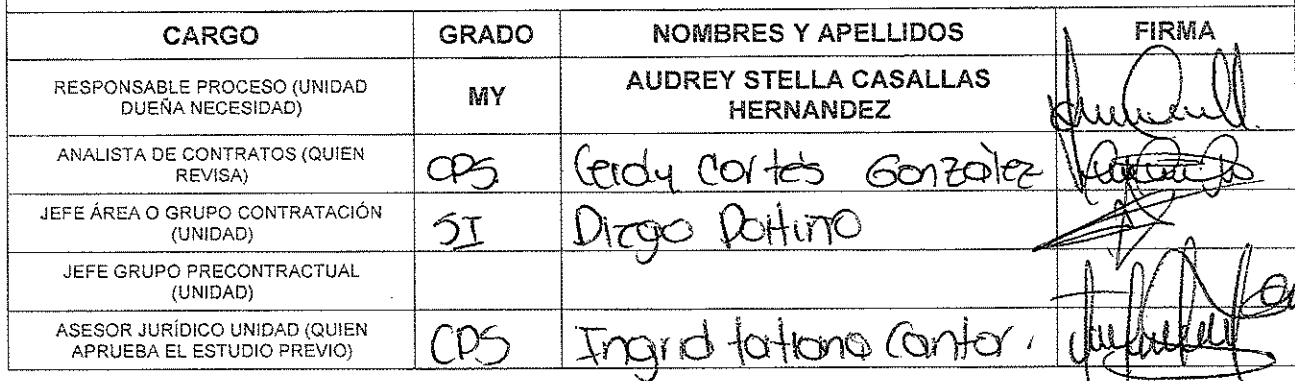 CARGO GRADO NOMBRES Y APELLIDOS FIRMA
RESPONSABLE PROCESO (UNIDAD
DUEÑA NECESIDAD)
MY
AUDREY STELLA CASALLAS
HERNANDEZ
ANALISTA DE CONTRATOS (QUIEN
REVISA)
CPS
Cortés González
JEFE ÁREA O GRUPO CONTRATACIÓN
(UNIDAD)
SI
Diego
JEFE GRUPO PRECONTRACTUAL
(UNIDAD)
ASESOR JURÍDICO UNIDAD (QUIEN
APRUEBA EL ESTUDIO PREVIO)
CPS
Ingrid tatiana Cantor.